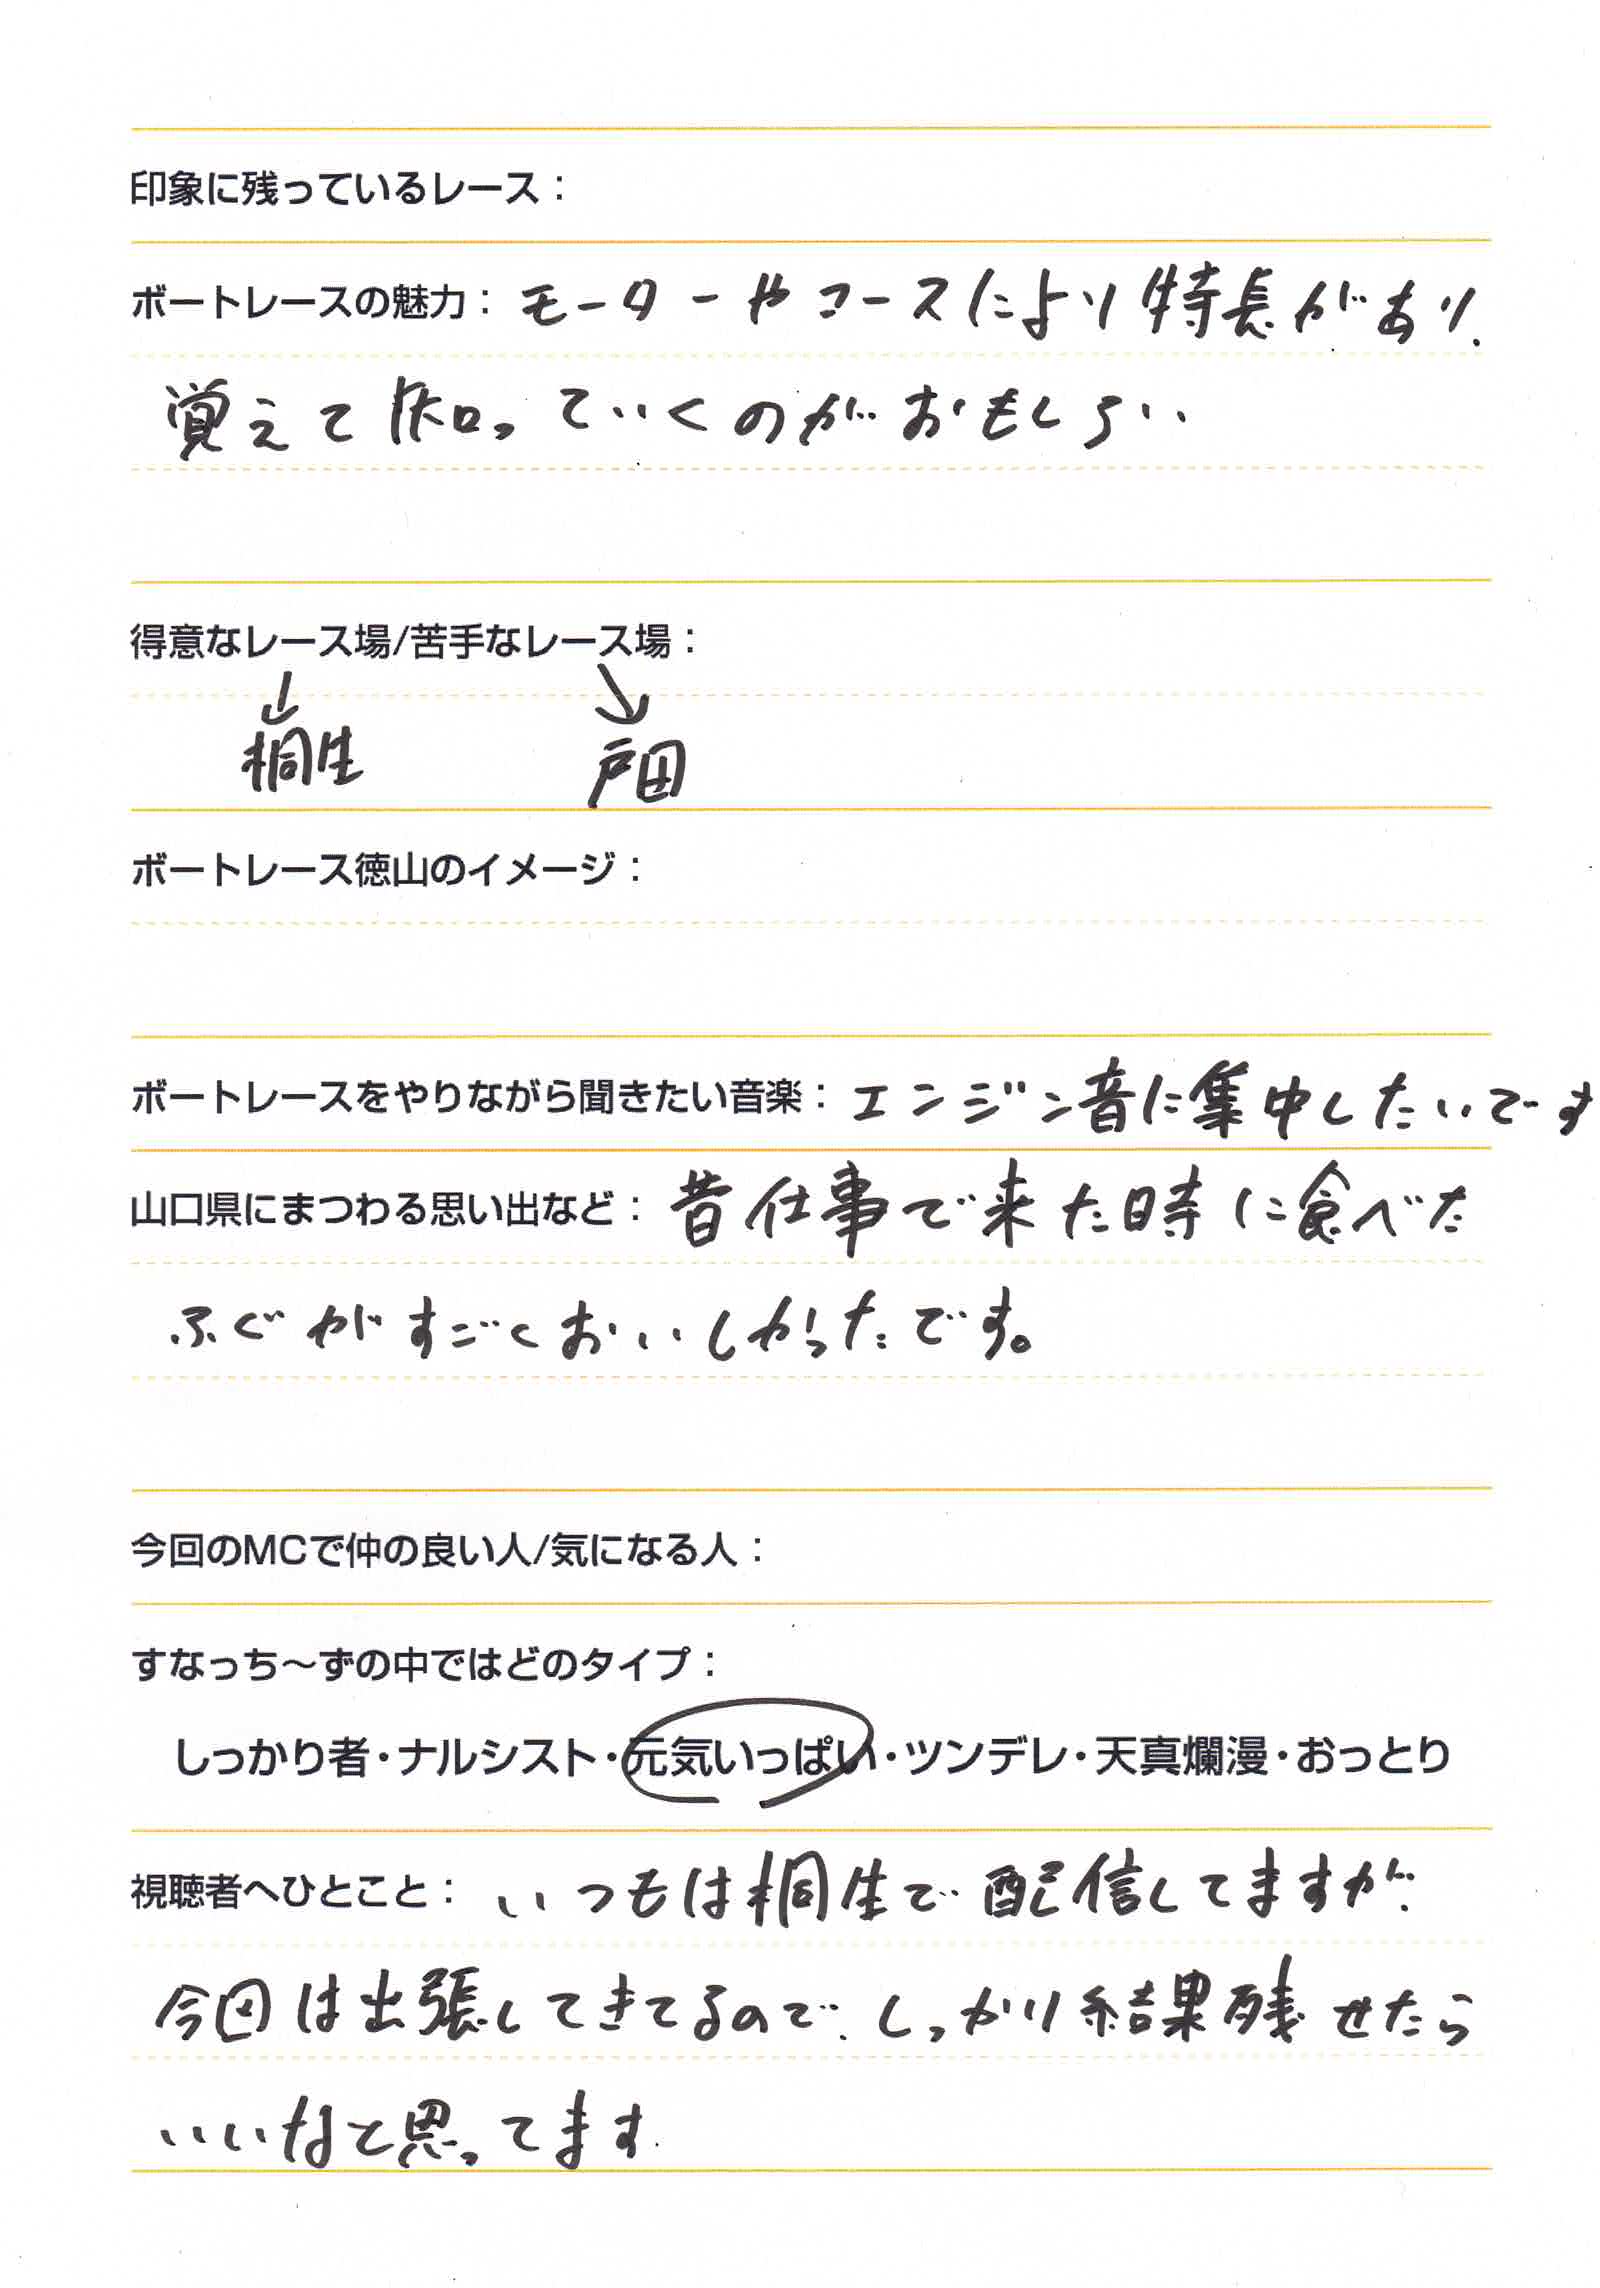 印象に残っているレース：
ボートレースの魅力：モーターやコースにより特長があり、
覚えて知っていくのがおもしろい
得意なレース場/苦手なレース場：
↓ ↘
桐生 戸田
ボートレース徳山のイメージ：
ボートレースをやりながら聞きたい音楽：エンジン音に集中したいです
山口県にまつわる思い出など：昔仕事で来た時に食べた
ふぐがすごくおいしかったです。
今回のMCで仲の良い人/気になる人：
すなっち～ずの中ではどのタイプ：
しっかり者・ナルシスト・元気いっぱい・ツンデレ・天真爛漫・おっとり
視聴者へひとこと：いつもは桐生で配信してますが、
今回は出張してきてるので、しっかり結果残せたら
いいなと思ってます.